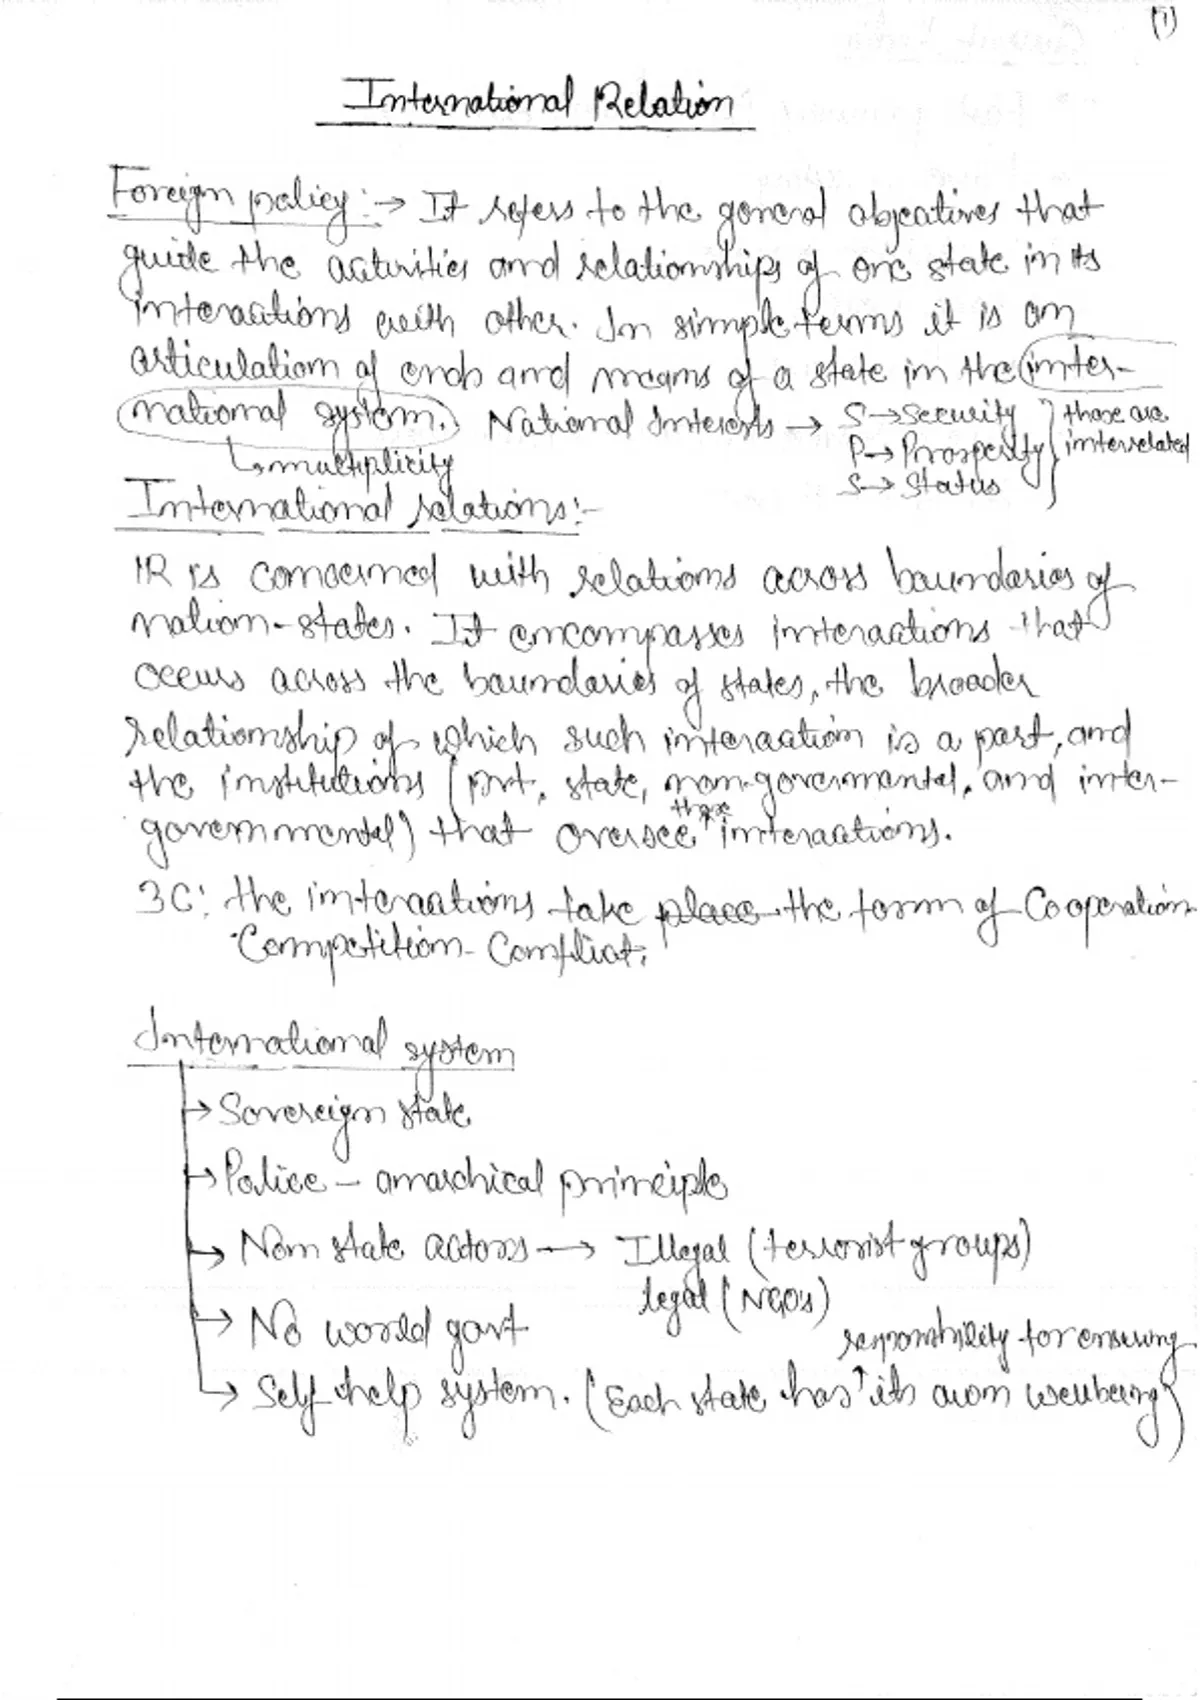 (1)
International Relation
Foreign policy:→ It refers to the general objectives that
guide the activities and relationships of one state in its
interactions with other. In simple terms it is an
articulation of ends and means of a state in the inter-
national system. National Interests → S→Security
P→Prosperity
S→Status
these are
interrelated
↳multiplicity
International relations:-
IR is concerned with relations across boundaries of
nation-states. It encompasses interactions that
occurs across the boundaries of states, the broader
relationship of which such interaction is a part, and
the institutions (pvt, state, non-governmental, and inter-
governmental) that oversee those interactions.
3C: the interactions take place the form of Cooperation-
Competition- Conflict.
International system
→ Sovereign state
→ Police – anarchical principle
→ Non state actors → Illegal (terrorist groups)
legal (NGO's)
→ No world govt
responsibility for ensuring
→ Self help system. (Each state has ↑ its own wellbeing)